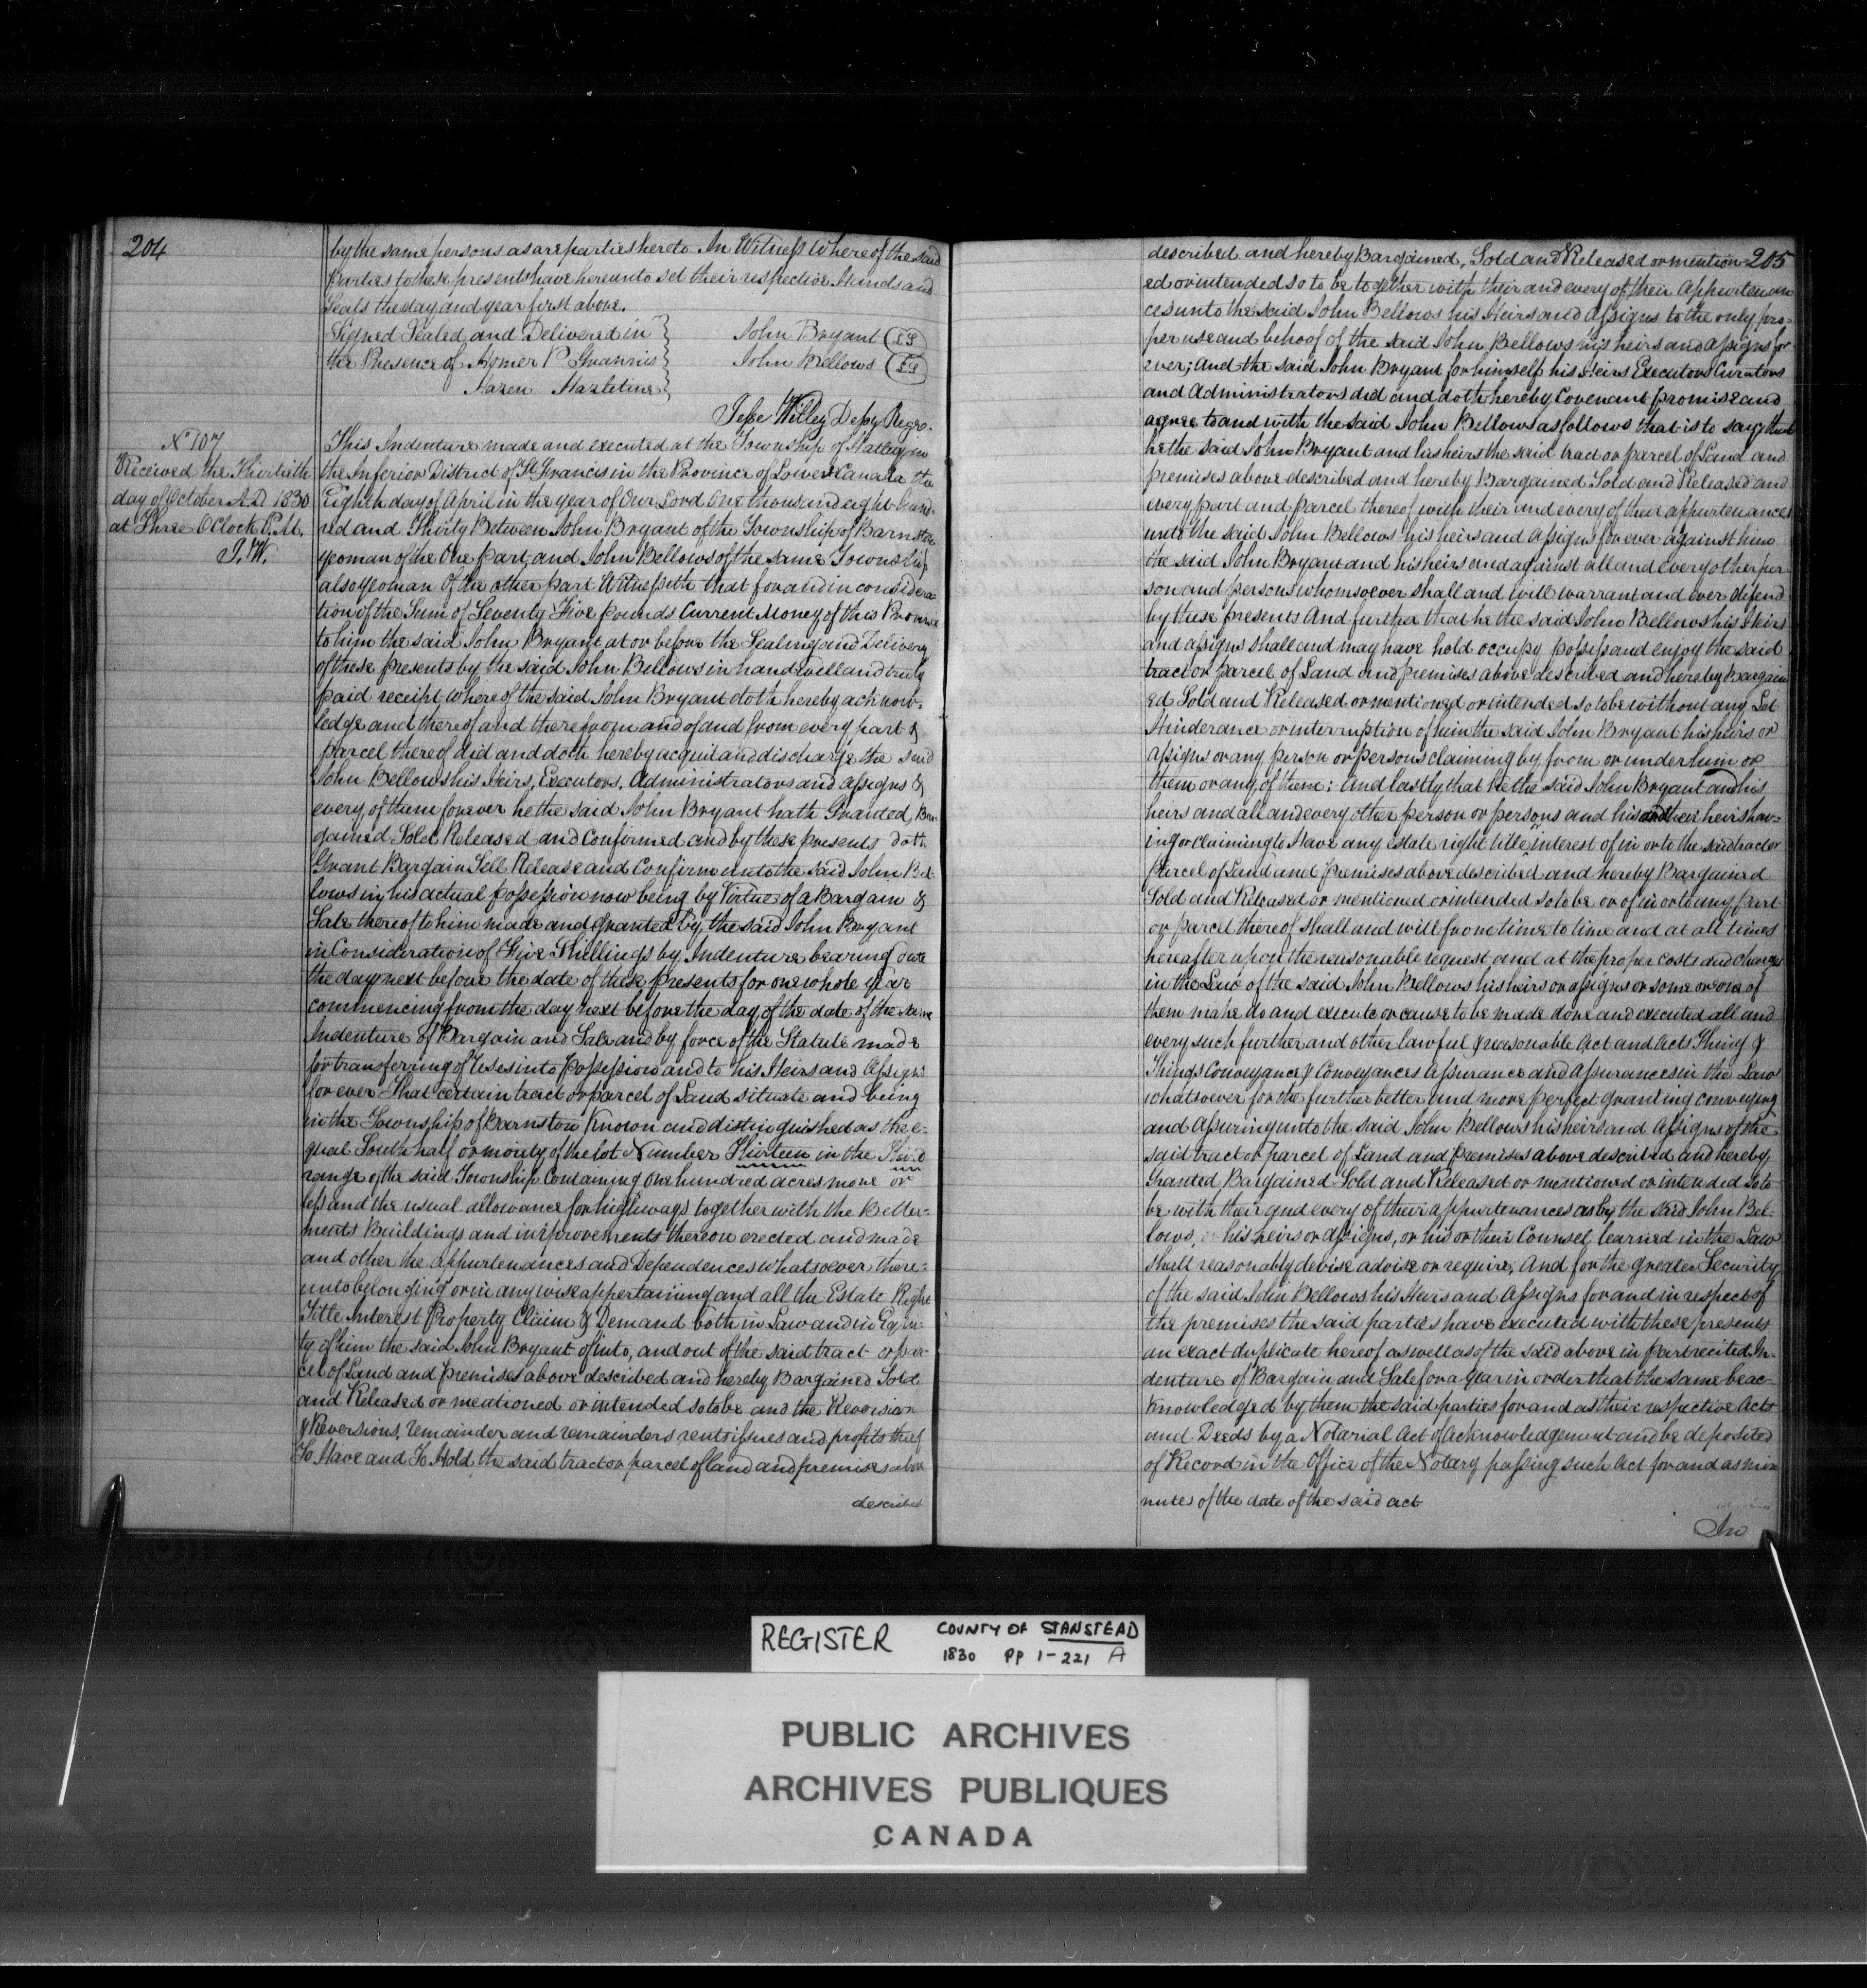 204
by the same persons as are parties hereto In Witness Whereof the said
Parties to these presents have hereunto set their respective Hands and
Seals the day and year first above.
Signed Sealed and Delivered in John Bryant LS
the Presence of Homer P John Bellows LS
Hazen Hazletine
Jesse Willey Depy Regr.
No 107
Received the Thirtieth
day of October A.D. 1830
at Three OClock P.M.
J.W.
This Indenture made and executed at the Township of Hatley in
the Inferior District of St Francis in the Province of Lower Canada the
Eighth day of April in the year of Our Lord One thousand eight hund-
red and Thirty Between John Bryant of the Township of Barnston
yeoman of the One part, and John Bellows of the same Township
also yeoman Of the other part Witnesseth that for and in considera-
tion of the Sum of Seventy Five pounds Current Money of this Province
to him the said John Bryant at or before the Sealing and Delivery
of these presents by the said John Bellows in hand well and truly
paid receipt whereof the said John Bryant doth hereby acknow-
ledge and thereof and therefrom and of and from every part &
parcel thereof did and doth hereby acquit and discharge the said
John Bellows his Heirs, Executors, Administrators and assigns &
every of them forever he the said John Bryant hath Granted, Bar-
gained Sold Released and Confirmed and by these presents doth
Grant Bargain Sell Release and Confirm unto the said John Bel-
lows in his actual possession now being by Virtue of a Bargain &
Sale thereof to him made and Granted by the said John Bryant
in Consideration of Five Shillings by Indenture bearing date
the day next before the date of these presents for one whole year
commencing from the day next before the day of the date of the same
Indenture of Bargain and Sale and by force of the Statute made
for transferring of Uses into Possession and to his Heirs and Assigns
for ever That certain tract or parcel of Land situate and being
in the Township of Barnston Known and distinguished as the e-
qual South half or moiety of the lot Number Thirteen in the Third
range of the said Township Containing one hundred acres more or
less and the usual allowance for highways together with the Better-
ments Buildings and improvements thereon erected and made
and other the appurtenances and Dependences whatsoever there-
unto belonging or in any wise appertaining and all the Estate Right
Title Interest Property Claim & Demand both in Law and in Equi-
ty of him the said John Bryant of into, and out of the said tract or par-
cel of Land and premises above described and hereby Bargained Sold
and Released or mentioned or intended so to be and the Reversion
& Reversions, remainder and remainders rents issues and profits thereof
To Have and To Hold the said tract or parcel of land and premises above
described
205
described and hereby Bargained, Sold and Released or mention-
ed or intended so to be together with their and every of their Appurtenan
ces unto the said John Bellows his Heirs and Assigns to the only pro-
per use and behoof of the said John Bellows his heirs and assigns for
ever; And the said John Bryant for himself his Heirs Executors Curators
and Administrators did and doth hereby Covenant promise and
agree to and with the said John Bellows as follows that is to say; that
he the said John Bryant and his heirs the said tract or parcel of Land and
premises above described and hereby Bargained Sold and Released and
every part and parcel thereof with their and every of their appurtenances
unto the said John Bellows his heirs and assigns for ever against him
the said John Bryant and his heirs and against all and every other per-
son and persons whomsoever shall and will warrant and ever defend
by these presents And further that he the said John Bellows his Heirs
and assigns shall and may have hold occupy possess and enjoy the said
tract or parcel of Land and premises above described and hereby Bargain
ed Sold and Released or mentioned or intended so to be without any Let
Hinderance or interruption of him the said John Bryant his heirs or
assigns or any person or persons claiming by from or under him or
them or any of them; And lastly that he the said John Bryant and his
heirs and all and every other person or persons and his and their heirs hav-
ing or claiming to Have any estate right title interest of in or to the said tract or
Parcel of Land and premises above described and hereby Bargained
Sold and Released or mentioned or intended so to be or of in or to any part
or parcel thereof shall and will from time to time and at all times
hereafter upon the reasonable request and at the proper costs and charges
in the Law of the said John Bellows his heirs or assigns or some or one of
them make do and execute or cause to be made done and executed all and
every such further and other lawful & reasonable Act and Acts Thing &
Things Conveyance & Conveyances assurance and assurances in the Law
whatsoever for the further better and more perfect granting conveying
and assuring unto the said John Bellows his heirs and Assigns of the
said tract or parcel of Land and premises above described and hereby
Granted Bargained Sold and Released or mentioned or intended so to
be with their and every of their appurtenances as by the said John Bel-
lows, his heirs or assigns, or his or their Counsel learned in the Law
shall reasonably devise advise or require; And for the greater Security
of the said John Bellows his Heirs and Assigns for and in respect of
the premises the said parties have executed with these presents
an exact duplicate hereof as well as of the said above in part recited In-
denture of Bargain and Sale for a year in order that the same be ac-
knowledged by them the said parties for and as their respective Acts
and Deeds by a Notarial Act of Acknowledgement and be deposited
of Record in the Office of the Notary passing such Act for and as mi
nutes of the date of the said act
REGISTER COUNTY OF STANSTEAD
1830 PP 1-221 A
PUBLIC ARCHIVES
ARCHIVES PUBLIQUES
CANADA